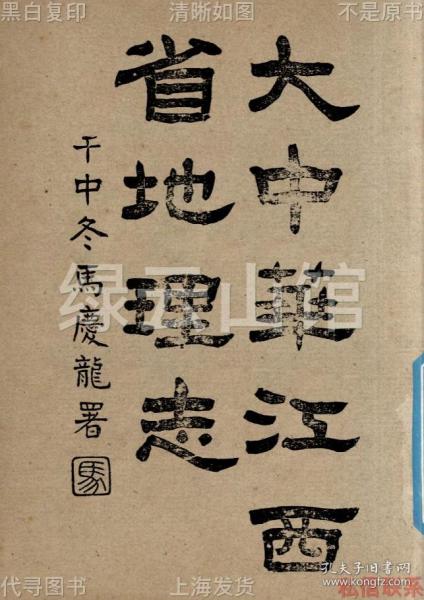 黑白复印 清晰如图 不是原书
大中華江西
省地理志
干中冬馬慶龍署
馬
绿云山馆
孔夫子旧书网
www.kongfz.com
代寻图书 上海发货 私信联系